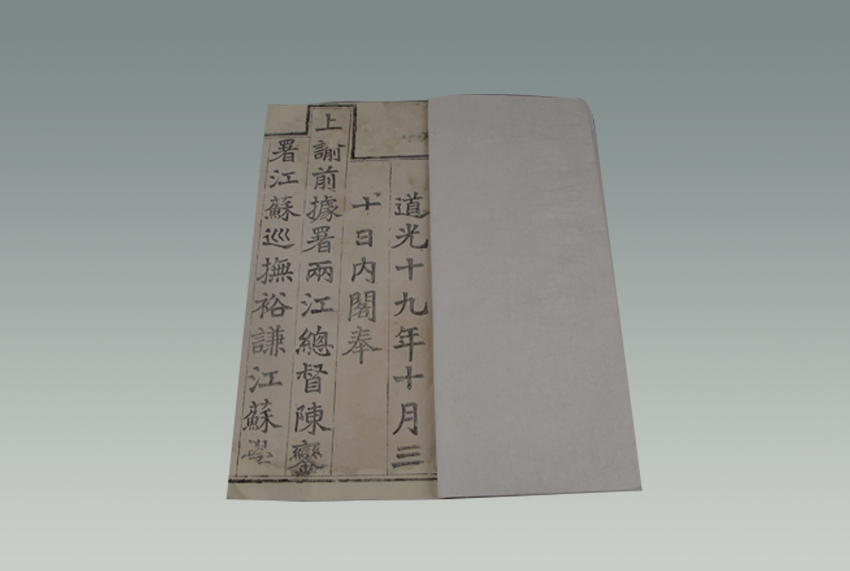 道光十九年十月三
十日內閣奉
上諭前據署兩江總督陳鑾
署江蘇巡撫裕謙江蘇學